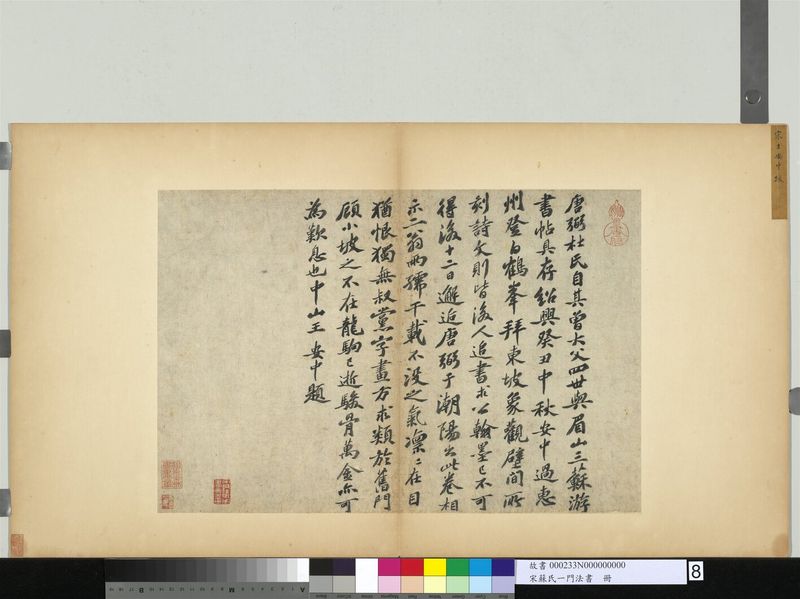 唐弼杜氏自其曾大父四世與眉山三蘇游
書帖具存紹興癸丑中秋安中過惠
州登白鶴峯拜東坡象觀壁間所
刻詩文則皆後人追書求公翰墨已不可
得後十二日邂逅唐弼于潮陽出此卷相
示二翁兩孺千載不没之氣凜〻在目
猶恨獨無叔黨字畫方求類於舊門
顧小坡之不在龍駒已逝駿骨萬金亦可
為歎息也中山王安中題
宋王安中跋
故書 000233N000000000
宋蘇氏一門法書 冊
8